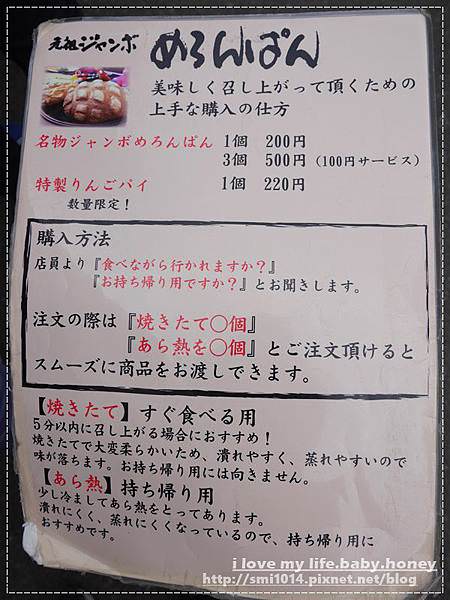 元祖ジャンボ
めろんぱん
美味しく召し上がって頂くための
上手な購入の仕方
名物ジャンボめろんぱん 1個 200円
3個 500円(100円サービス)
特製りんごパイ 1個 220円
数量限定!
購入方法
店員より『食べながら行かれますか?』
『お持ち帰り用ですか?』とお聞きします。
注文の際は『焼きたて〇個』
『あら熱を〇個』とご注文頂けると
スムーズに商品をお渡しできます。
【焼きたて】すぐ食べる用
5分以内に召し上がる場合におすすめ!
焼きたてで大変柔らかいため、潰れやすく、蒸れやすいので
味が落ちます。お持ち帰り用には向きません。
【あら熱】持ち帰り用
少し冷ましてあら熱をとってあります。
潰れにくく、蒸れにくくなっているので、持ち帰り用に
おすすめです。
i love my life.baby.honey
http://smi1014.pixnet.net/blog